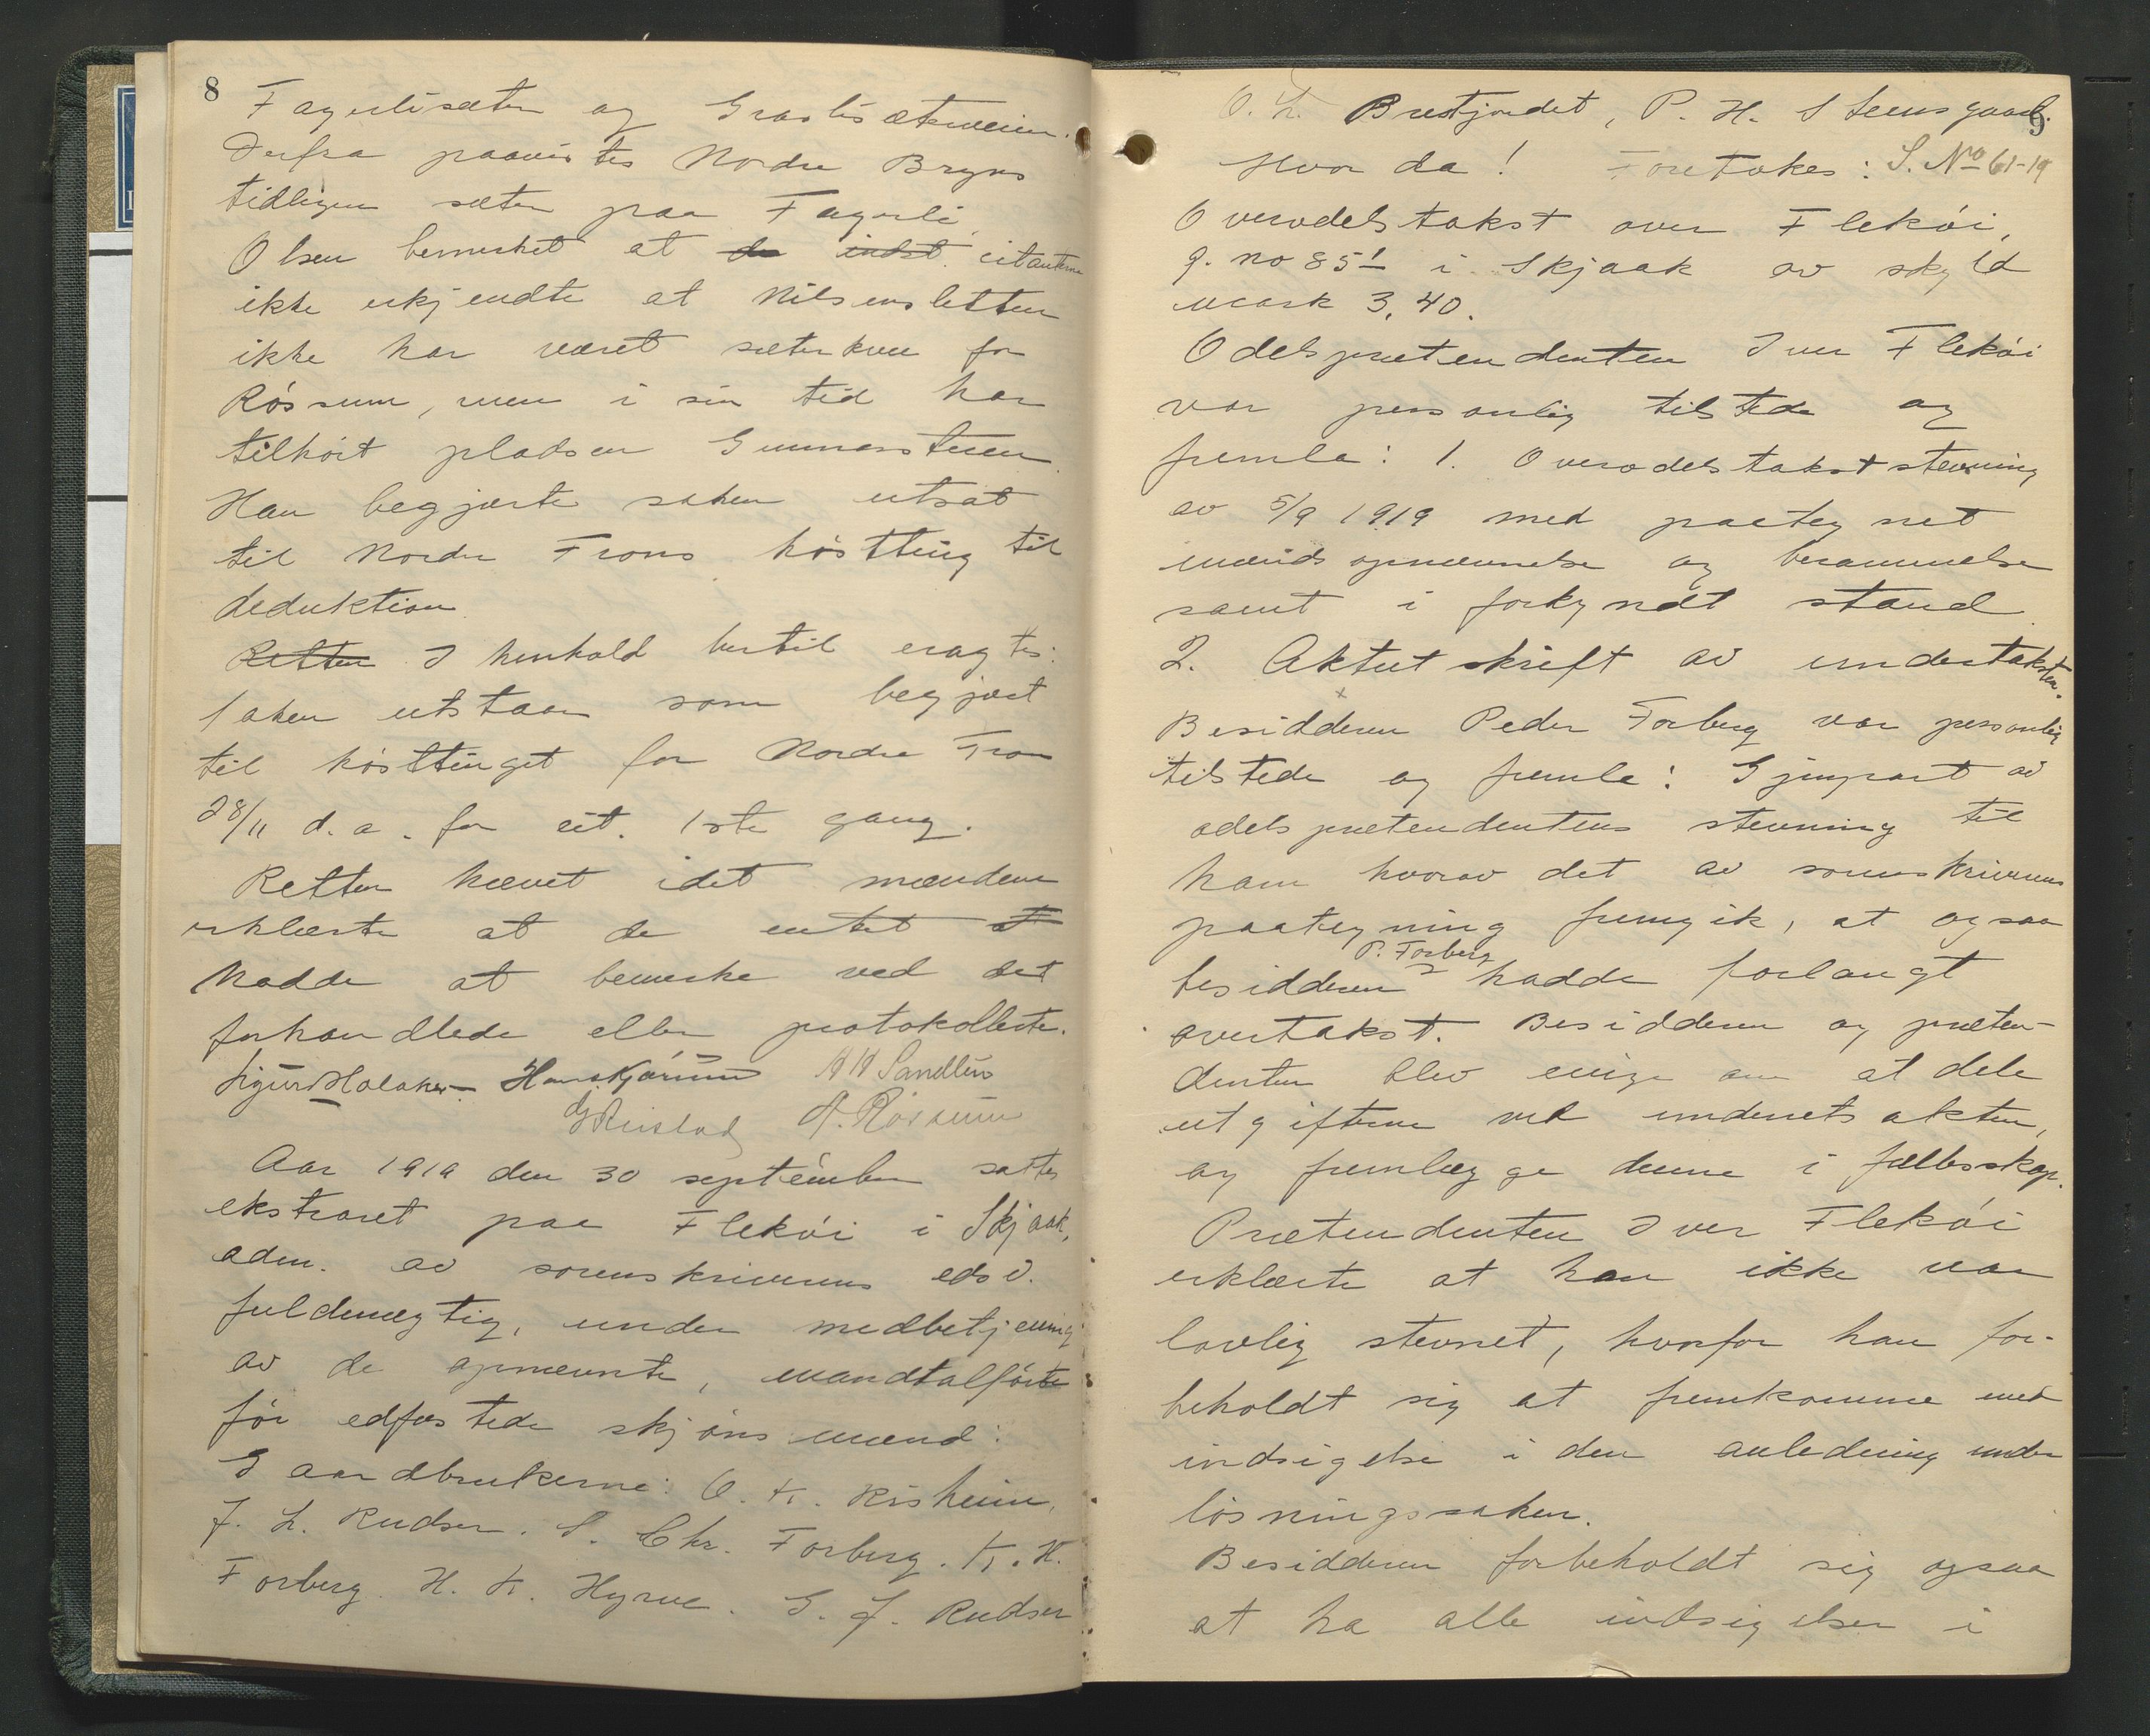 8
Fagerlisæter og Graslisæterveien.
Derfra paavistes Nordre Bryns
tidligere sæter paa Fagerli.
Olsen bemerket at de indst. citanterne
ikke erkjendte at Nilsensletten
ikke har været sæterkve for
Røssum, men i sin tid har
tilhørt pladsen Gunnarstuen.
Han begjærte saken utsat
til Nordre Frons høstting til
deduktion.
Retten I henhold hertil eragtes:
Saken utstaar som begjært
til høsttinget for Nordre Fron
28/11 d.a. for cit. 1ste gang.
Retten hævet idet mændene
erklærte at de intet at
hadde at bemerke ved det
forhandlede eller protokollerte.
Sigurd Halaker. Hans Kjørum H H Sandlin
G Ruistad A. Røssum
Aar 1919 den 30 september sattes
ekstraret paa Flekøi i Skjaak,
adm. av sorenskriverens edsv.
fuldmægtig, under medbetjening
av de opnævnte, mandtalførte
før edfæstede skjønsmænd:
Gaardbrukerne: O. K. Risheim,
J. L. Rudser. S. Chr. Forberg. K. H.
Forberg. H. K. Hyrve. G. J. Rudser
9
O. L. Brustjordet, P. H. Steensgaard.
Hvor da! Foretokes: S. No 61-19
Overodelstakst over Flekøi,
g. no 85 1 i Skjaak av skyld
mark 3,40.
Odelsprætendenten Iver Flekøi
var personlig tilstede og
fremla: 1. Overodelstakststevning
av 5/9 1919 med paategnet
mændsopnævnelse og berammelse
samt i forkyndt stand.
2. Aktutskrift av undertaksten.
Besidderen Peder Forberg var personlig
tilstede og fremla: Gjenpart av
odelsprætendentens stevning til
ham hvorav det av sorenskriverens
paategning fremgik, at ogsaa
P. Forberg
besidderen hadde forlangt
overtakst. Besidderen og præten-
denten blev enige om at dele
utgifterne ved underretsakten,
og fremlægge denne i fællesskap.
Prætendenten Iver Flekøi
erklærte at han ikke var
lovlig stevnet, hvorfor han for-
beholdt sig at fremkomme med
indsigelse i den anledning under
løsningssaken.
Besidderen forbeholdt sig ogsaa
at ha alle indsigelser i